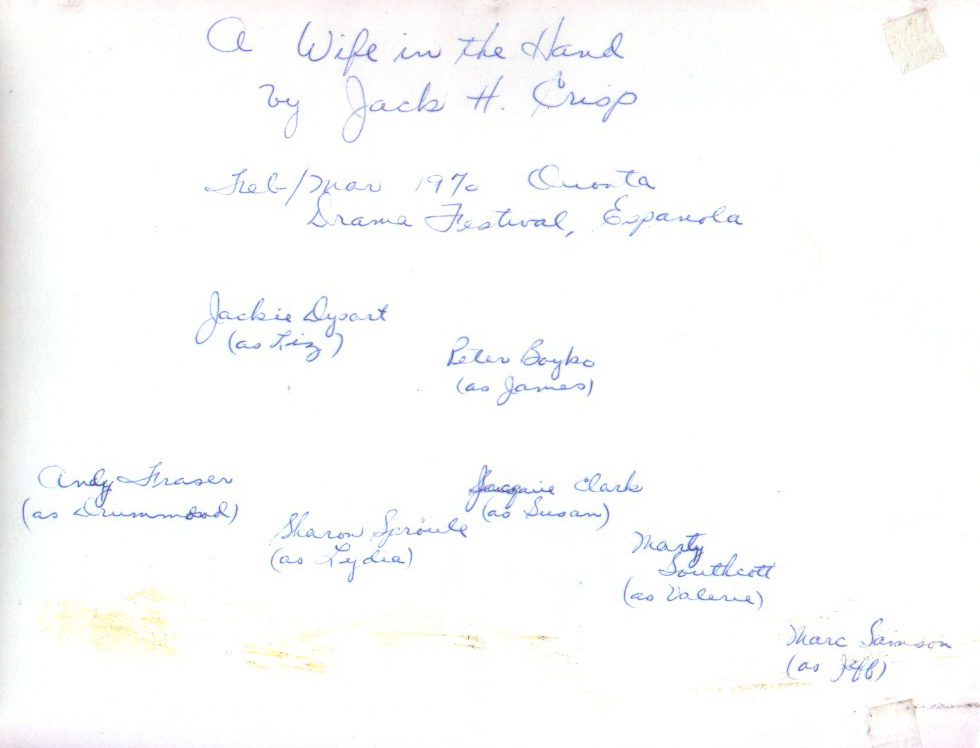 A Wife in the Hand
by Jack H. Crisp
Feb/Mar 1970 Quonta
Drama Festival, Espanola
Jackie Dysart
(as Liz)
Peter Boyko
(as James)
Andy Fraser
(as Drummond)
Clark
(as Susan)
Sharon Sproule
(as Lydia)
Marty
Southcott
(as Valerie)
Marc Samson
(as Jeff)